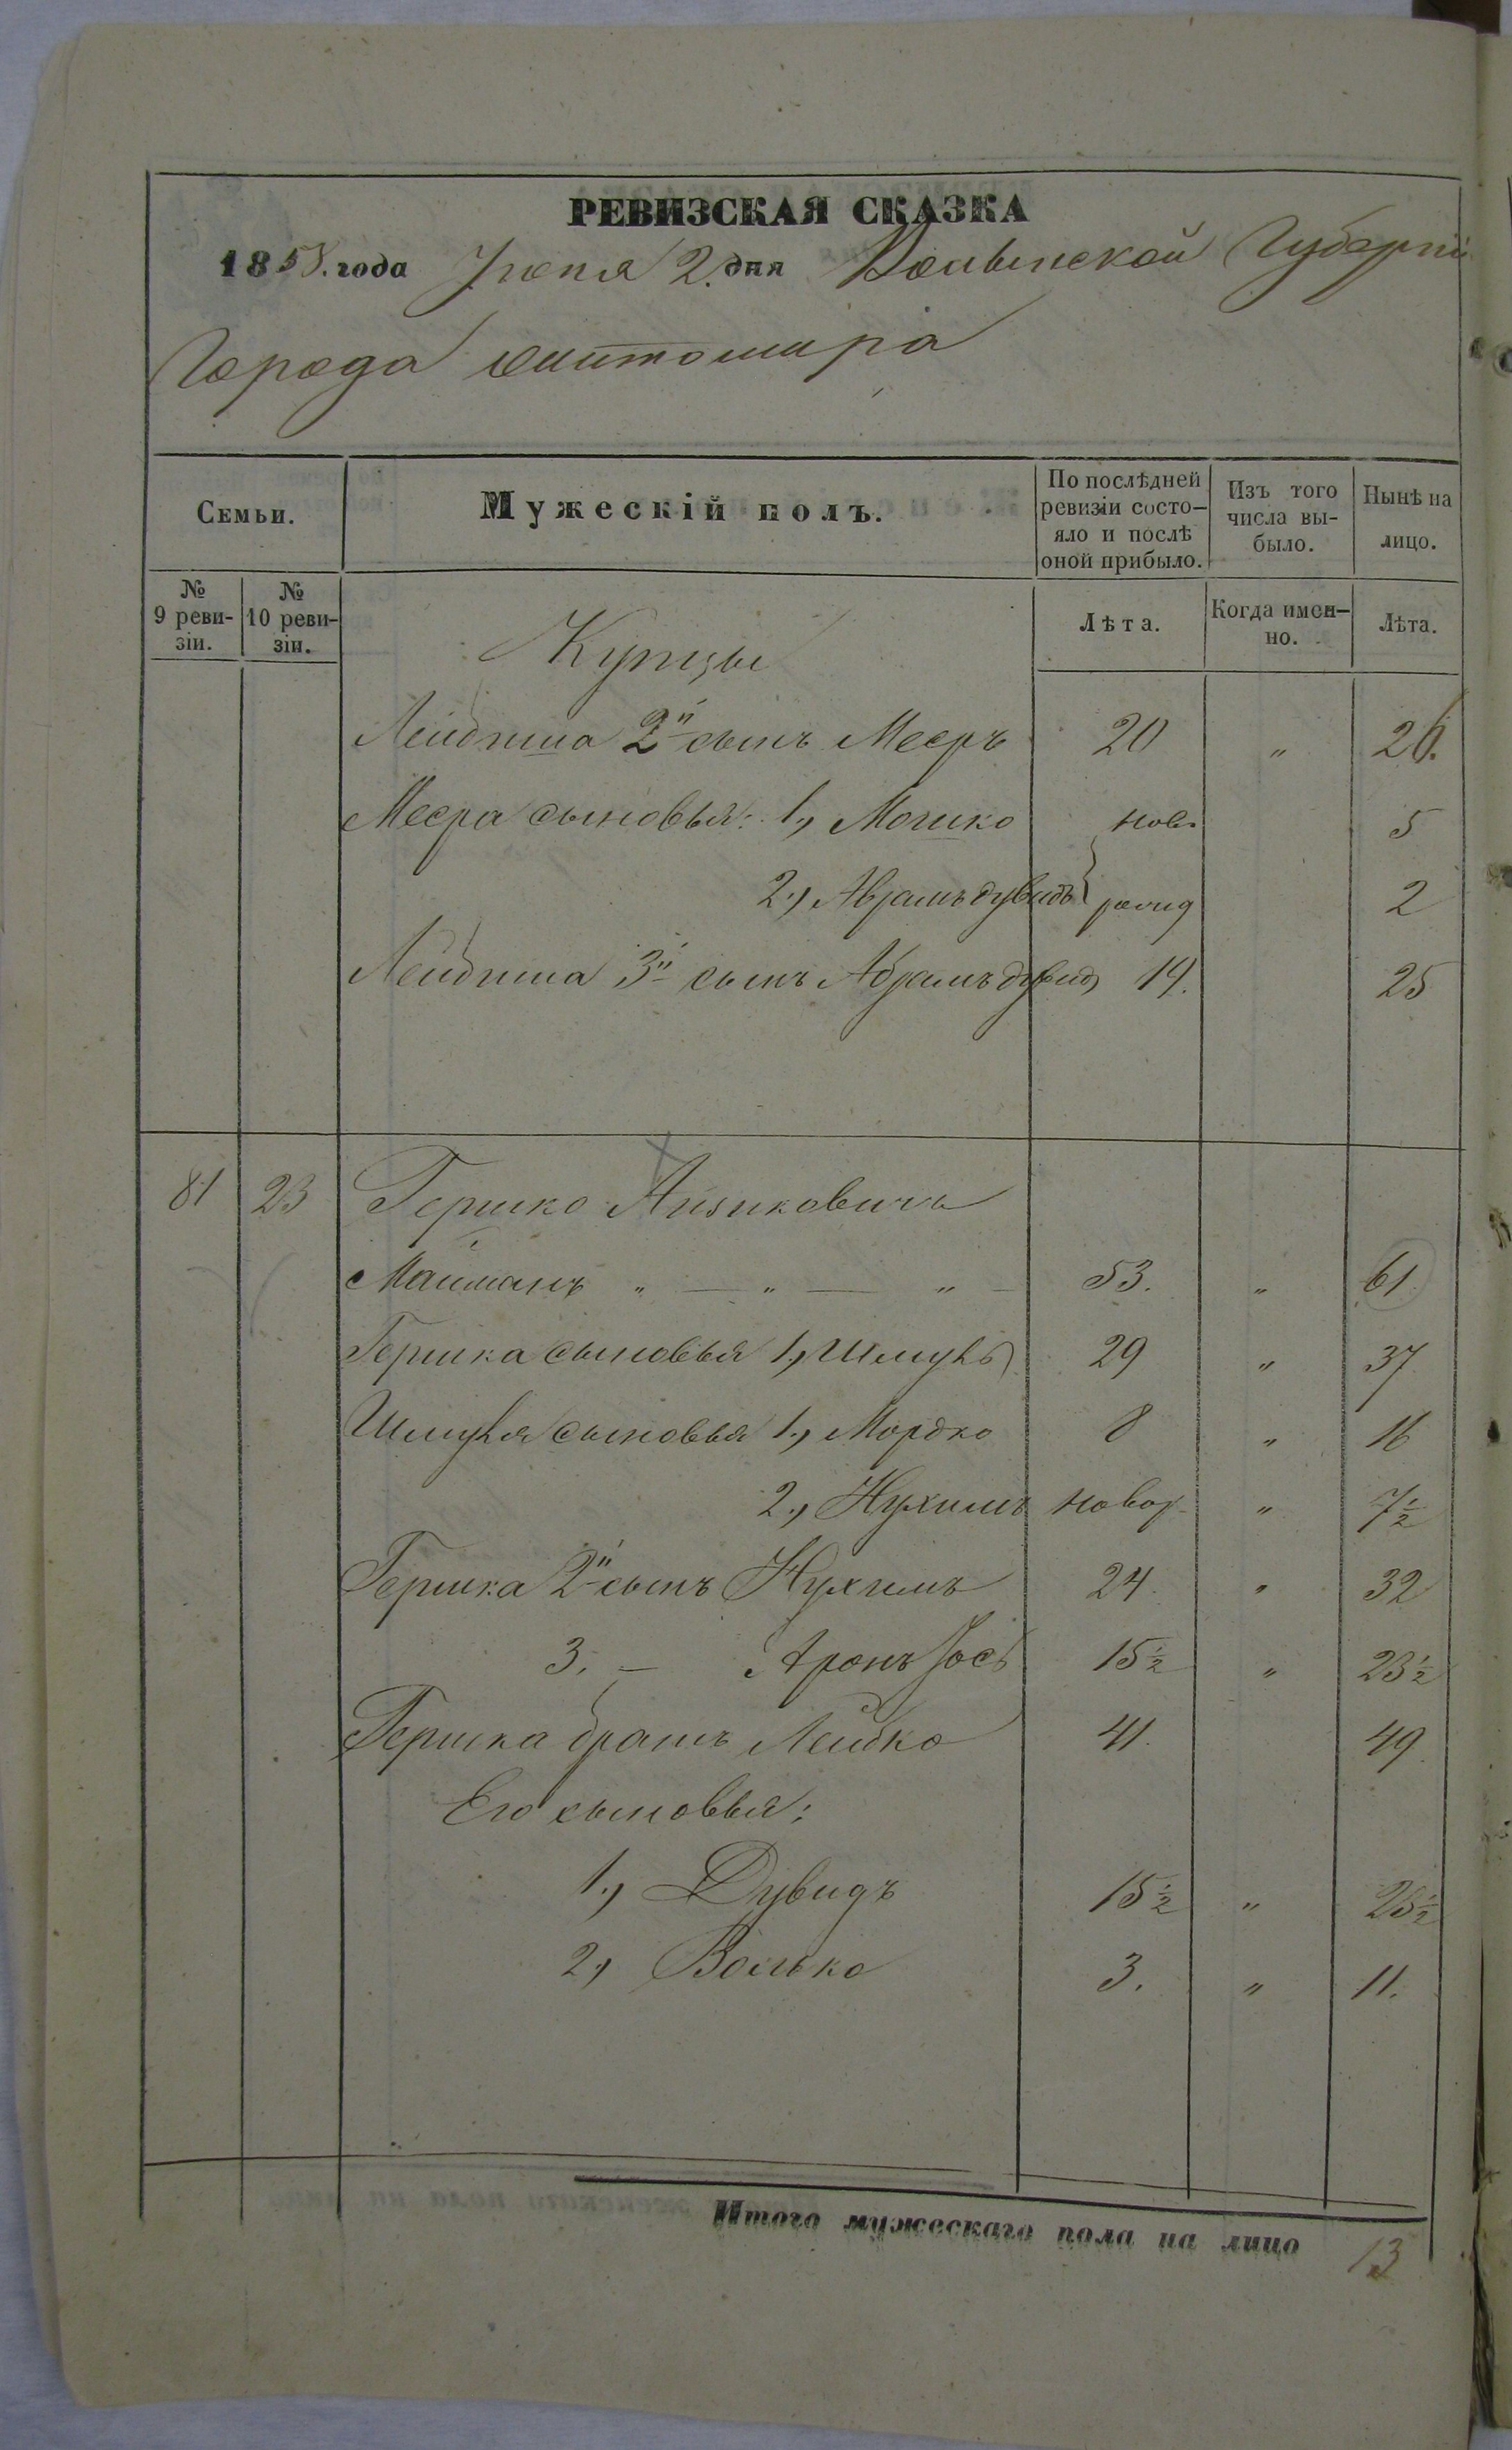 РЕВИЗСКАЯ СКАЗКА
1858. года Іюня 2. дня Волынской Губерніи
Города Житомира
Семьи.
Мужескій полъ.
По послѣдней ревизіи состо-
яло и послѣ оной прибыло.
Изъ того числа вы-
было.
Нынѣ на лицо.
№ 9 реви-
зіи.
№ 10 реви-
зіи.
Лѣта.
Когда имен-
но.
Лѣта.
Купцы
2й сынъ Мееръ 20 " 26.
Меера сыновья: 1., Мошко нов. 5
2., Аврамъ дувидъ рожд 2
3й сынъ Абрамъ дувид 19. 25
81 23 Гершко Айзиковичъ
Майманъ " — " — " — 53. " 61
Гершка сыновья 1., Шмуль 29 " 37
Шмуля сыновья 1., Мордко 8 " 16
2., Нухимъ новор " 7½
Гершка 2й сынъ Нухимъ 24. " 32
3. — Аронъ Іось 15½ " 23½
Гершка братъ Лейбко 41. 49.
Его сыновья:
1., Дувидъ 15½ " 23½
2., Волько 3. " 11.
Итого мужескаго пола на лицо 13